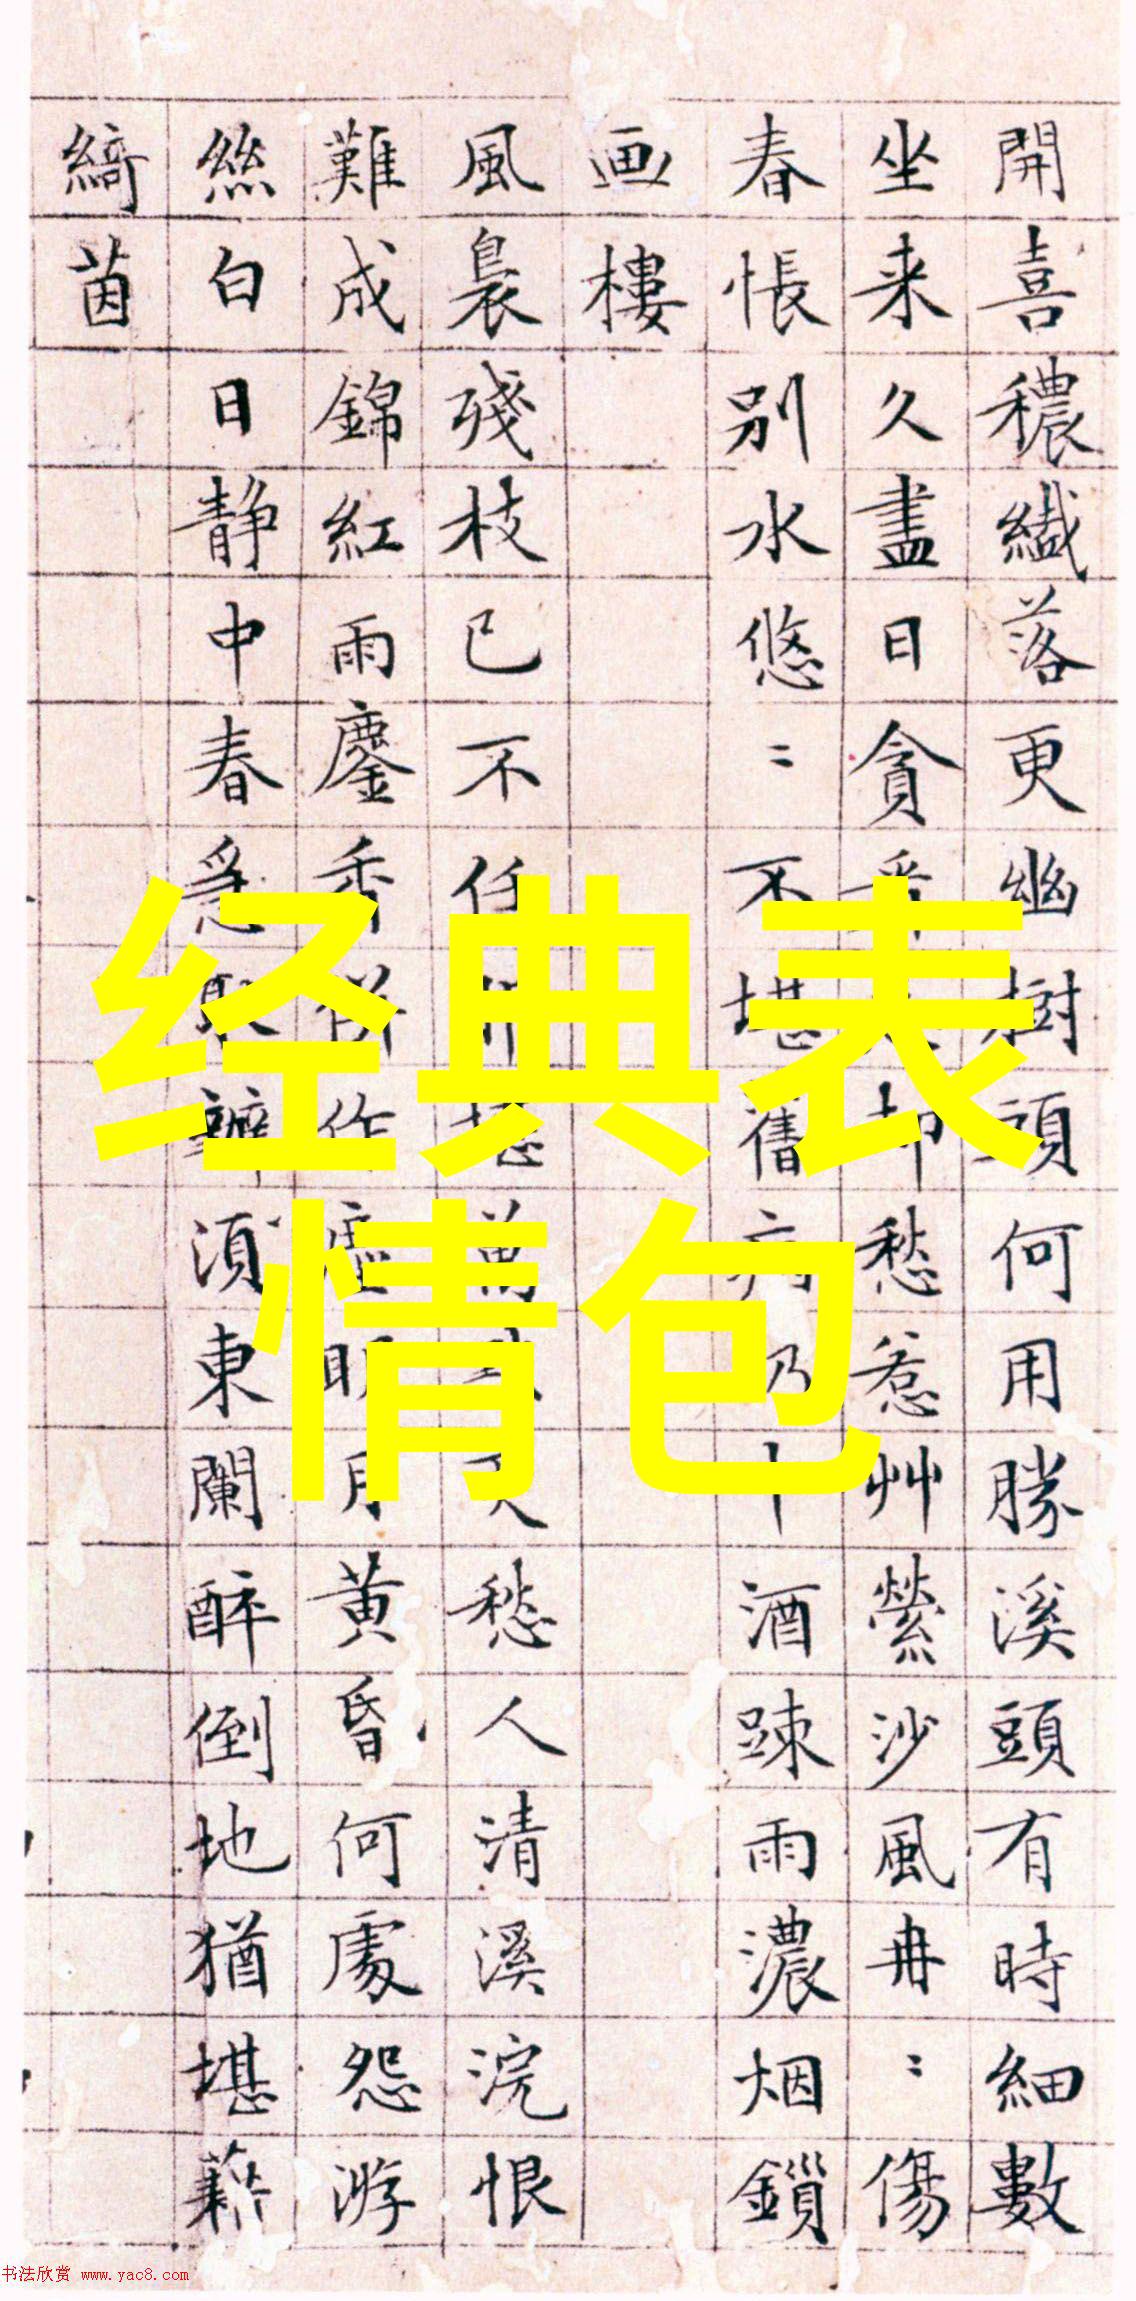 開喜穠繊落更幽樹頭何用勝溪頭有時細數
坐来久盡日貪愁惹艸縈沙風冉〻傷
春悵别水悠〻不堪舊酒疎雨濃烟鎖
画樓
風裊殘枝已不任愁人清溪浣恨
難成錦紅雨鏖香作黄昏何處怨游
絲白日静中春急須東闌醉倒地猶堪藉
綺茵
经典表
情包
书法欣赏 www.yac8.com